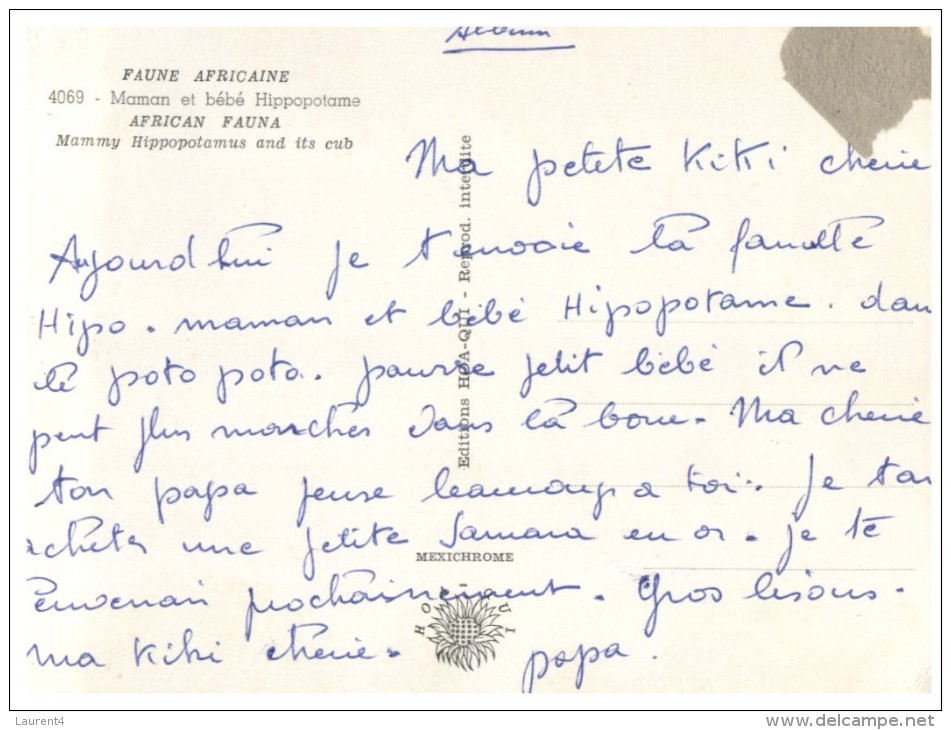 Album
FAUNE AFRICAINE
4069 - Maman et bébé Hippopotame
AFRICAN FAUNA
Mammy Hippopotamus and its cub
Ma petite Kiki cherie
Aujourd'hui je t'envoie la famille
Hipo. maman et bébé Hipopotame. dan
le poto poto. pauvre petit bébé il ne
peut plus marcher dans la boue. Ma cherie
ton papa pense beaucoup a toi. Je t'ai
acheter une petite Samara en or. je te
l'enverrai prochainement. Gros bisous.
ma Kiki cherie.
papa.
Editions HOA-QUI - Reprod. interdite
MEXICHROME
HOA-QUI
Laurent4
www.delcampe.net